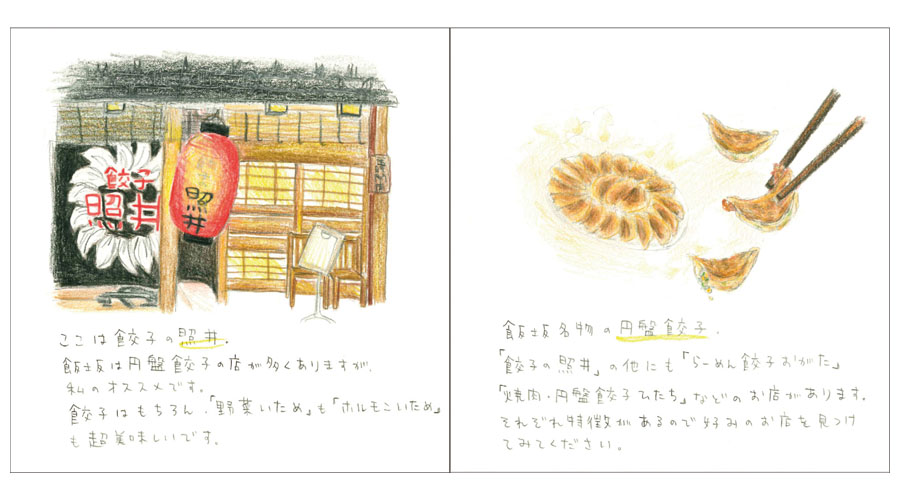 餃子
照井
照井
ここは餃子の照井.
飯坂は円盤餃子の店が多くありますが、
私のオススメです。
餃子はもちろん、「野菜いため」も「ホルモンいため」
も超美味しいです。
飯坂名物の円盤餃子.
「餃子の照井」の他にも「らーめん餃子おがた」
「焼肉・円盤餃子ひたち」などのお店があります。
それぞれ特徴があるので好みのお店を見つけ
てみてください。